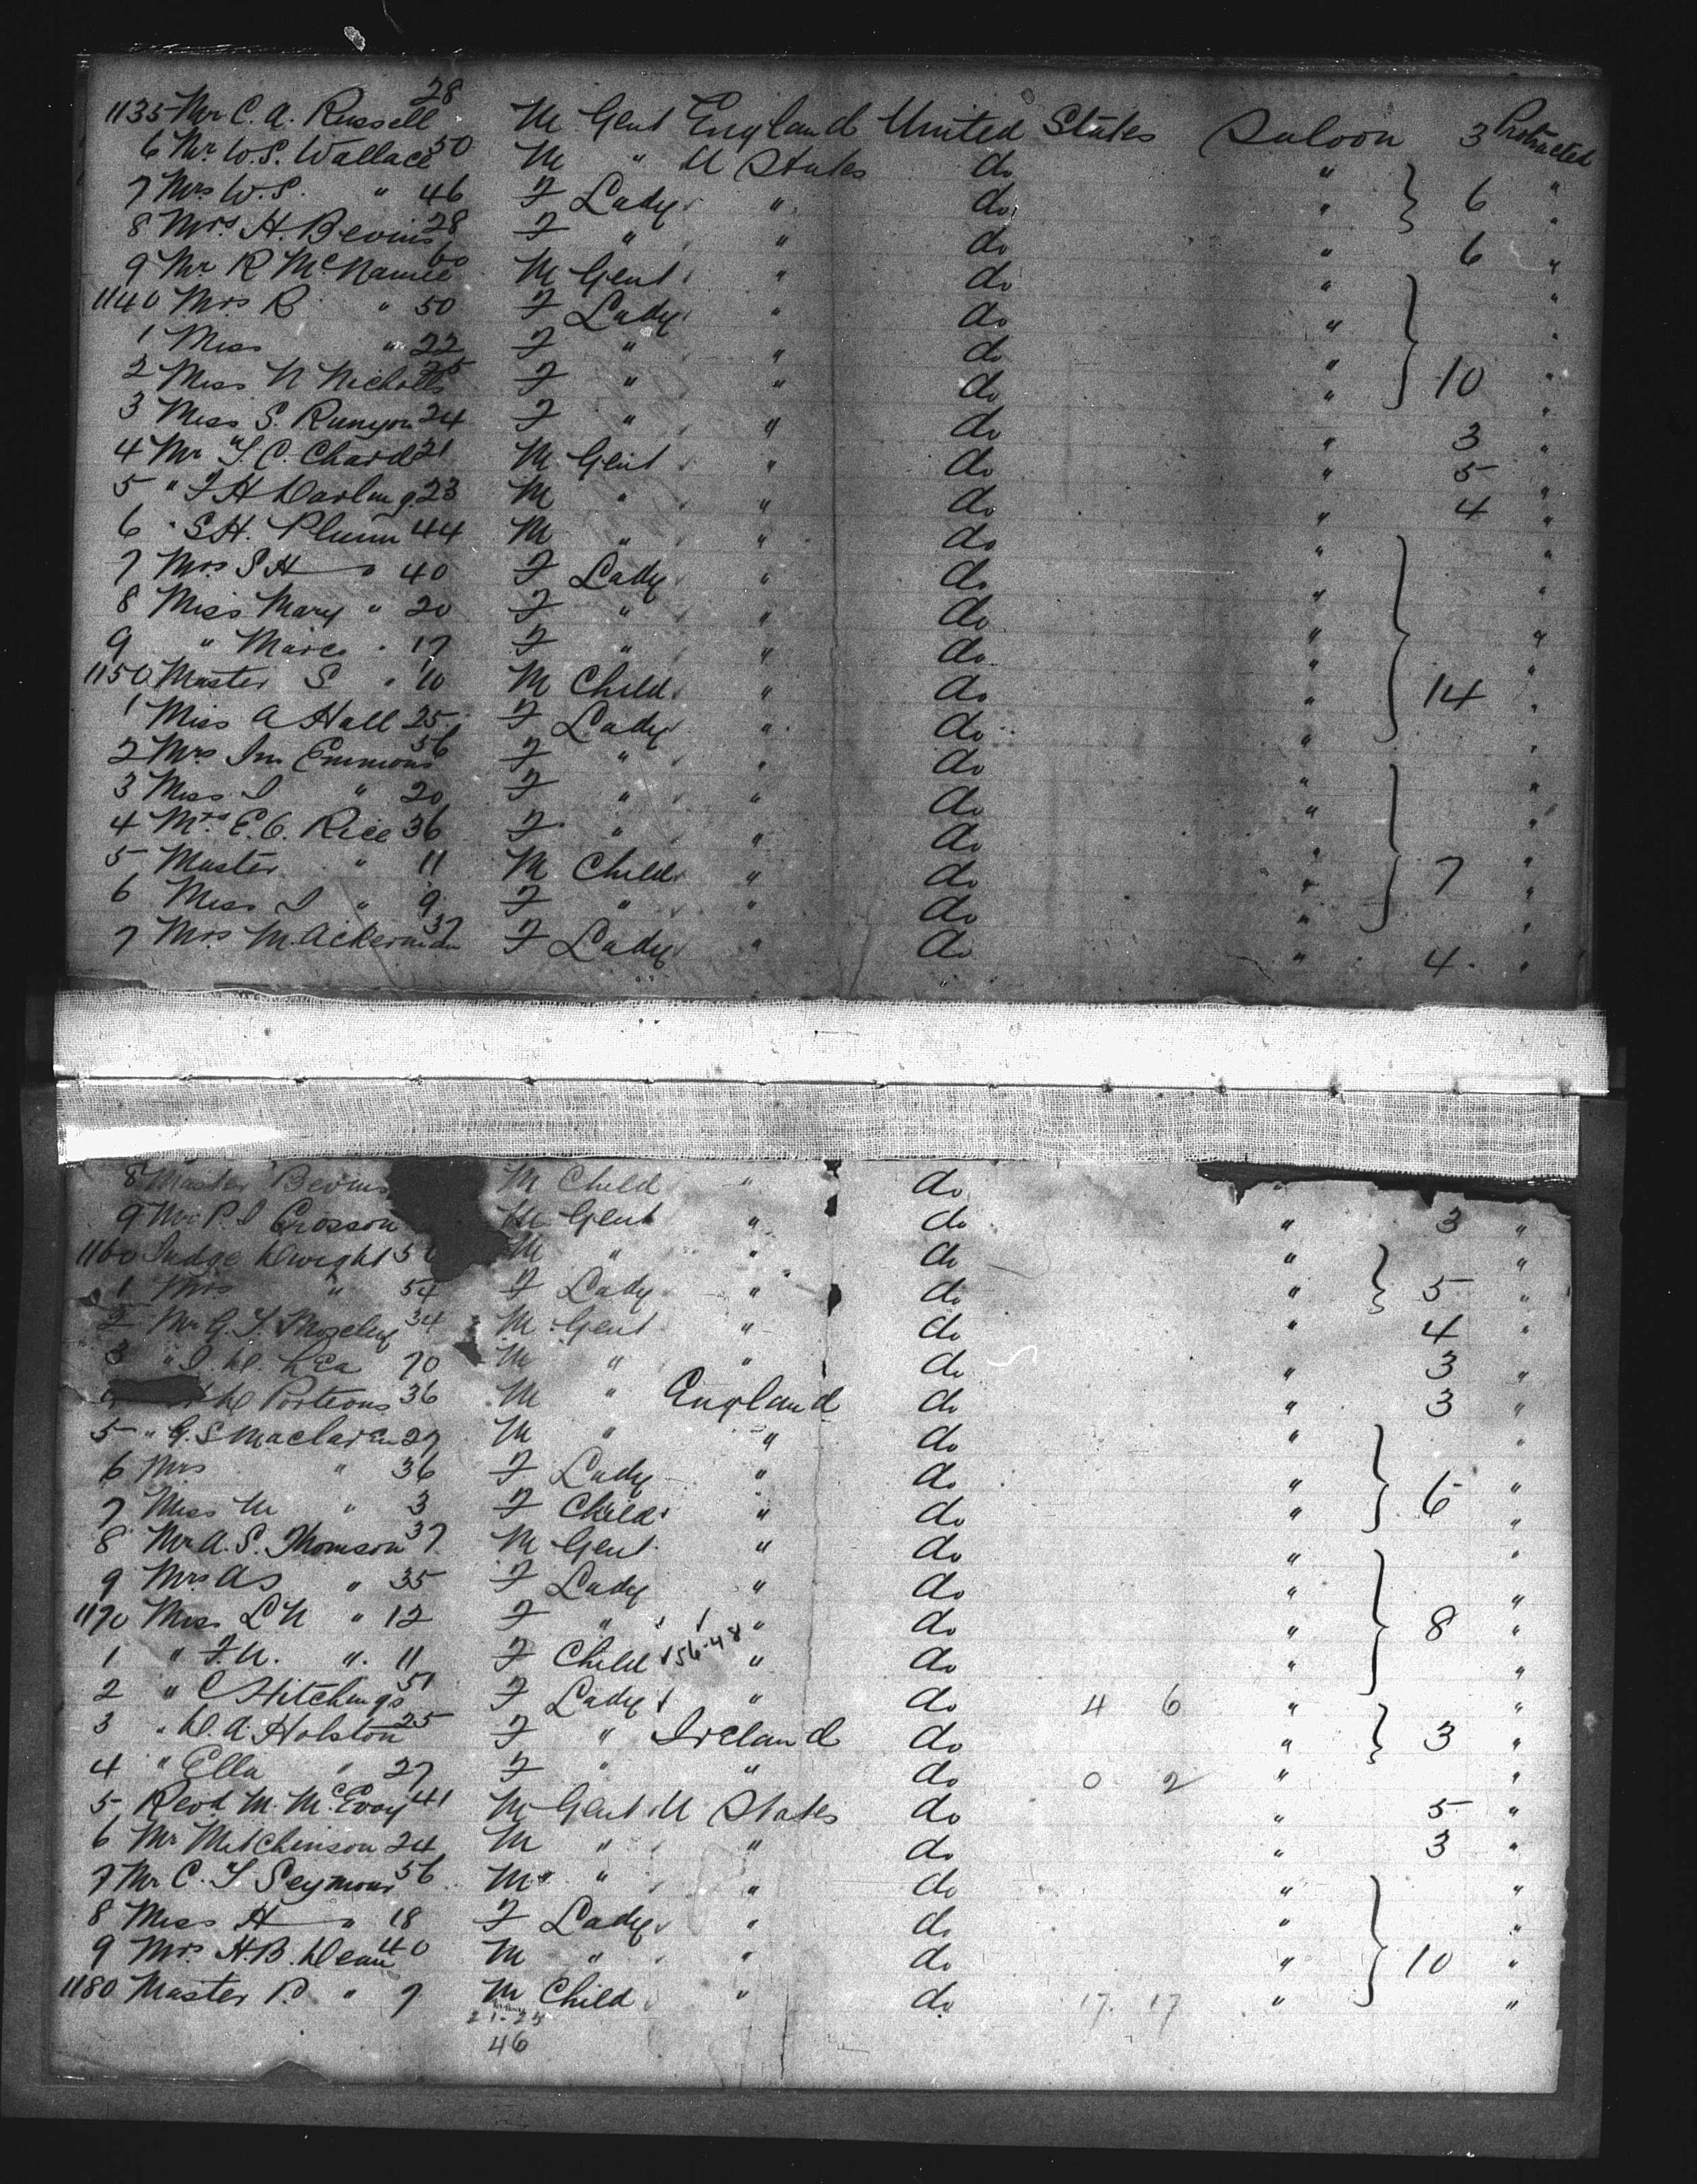 1135 Mr C. A. Russell 28 M Gent England United States Saloon 3 Protracted
6 Mr W. S. Wallace 50 M " U States do "
7 Mrs W. S. " 46 F Lady " do " } 6 "
8 Mrs H. Bevins 28 F " " do " 6 "
9 Mr R McNamee 60 M Gent " do " "
1140 Mrs R " 50 F Lady " do " "
1 Miss " 22 F " " do "
2 Miss N Nicholls 25 F " " do " } 10 "
3 Miss S. Runyon 24 F " " do " 3 "
4 Mr T. C. Chard 21 M Gent " do " 5 "
5 " F H Darling 23 M " " do " 4 "
6 " S H. Plum 44 M " " do " "
7 Mrs S H " 40 F Lady " do " "
8 Miss Mary " 20 F " " do " "
9 " " 17 F " " do " "
1150 Master S " 10 M Child " do " } 14 "
1 Miss A Hall 25 F Lady " do " "
2 Mrs Emmons 56 F " " do " "
3 Miss I " 20 F " " do " } "
4 Mrs E. C. Rice 36 F " " do " "
5 Master " 11 M Child " do " 7 "
6 Miss I " 9 F " " do " } "
7 Mrs M. Ackerman 37 F Lady " do " 4 "
8 Master Bevins M Child " do "
9 Mr P. I Crosson M Gent " do " 3 "
1160 Judge Dwight 5 M " " do " "
1 Mrs " 54 F Lady " do " } 5 "
2 Mr G. T Mozeley 34 M Gent " do " 4 "
3 " I. D. Lea 70 M " " do " 3 "
D Porteous 36 M " England do " 3 "
5 " G. S Maclaren 27 M " " do " "
6 Mrs " 36 F Lady " do " "
7 Miss M " 3 F Child " do " } 6 "
8 Mr A. S. Thomson 37 M Gent " do " "
9 Mrs A S " 35 F Lady " do " "
1170 Miss L N " 12 F " " do " } 8 "
1 " F. N. " 11 F Child 56-48 " do " "
2 " C Hitchings 51 F Lady " do 4 6 " "
3 " D. A. Holston 25 F " Ireland do " } 3 "
4 " Ella " 27 F " " do 0 2 " "
5 Revd M. McEvoy 41 M Gent U States do " 5 "
6 Mr Mitchinson 24 M " " do " 3 "
7 Mr C. T Seymour 56 M " " do " "
8 Miss H " 18 F Lady " do " "
9 Mrs H. B. Dean 40 M " " do " } 10 "
1180 Master P. " 7 M Child " do 17 17 " "
21-25
46